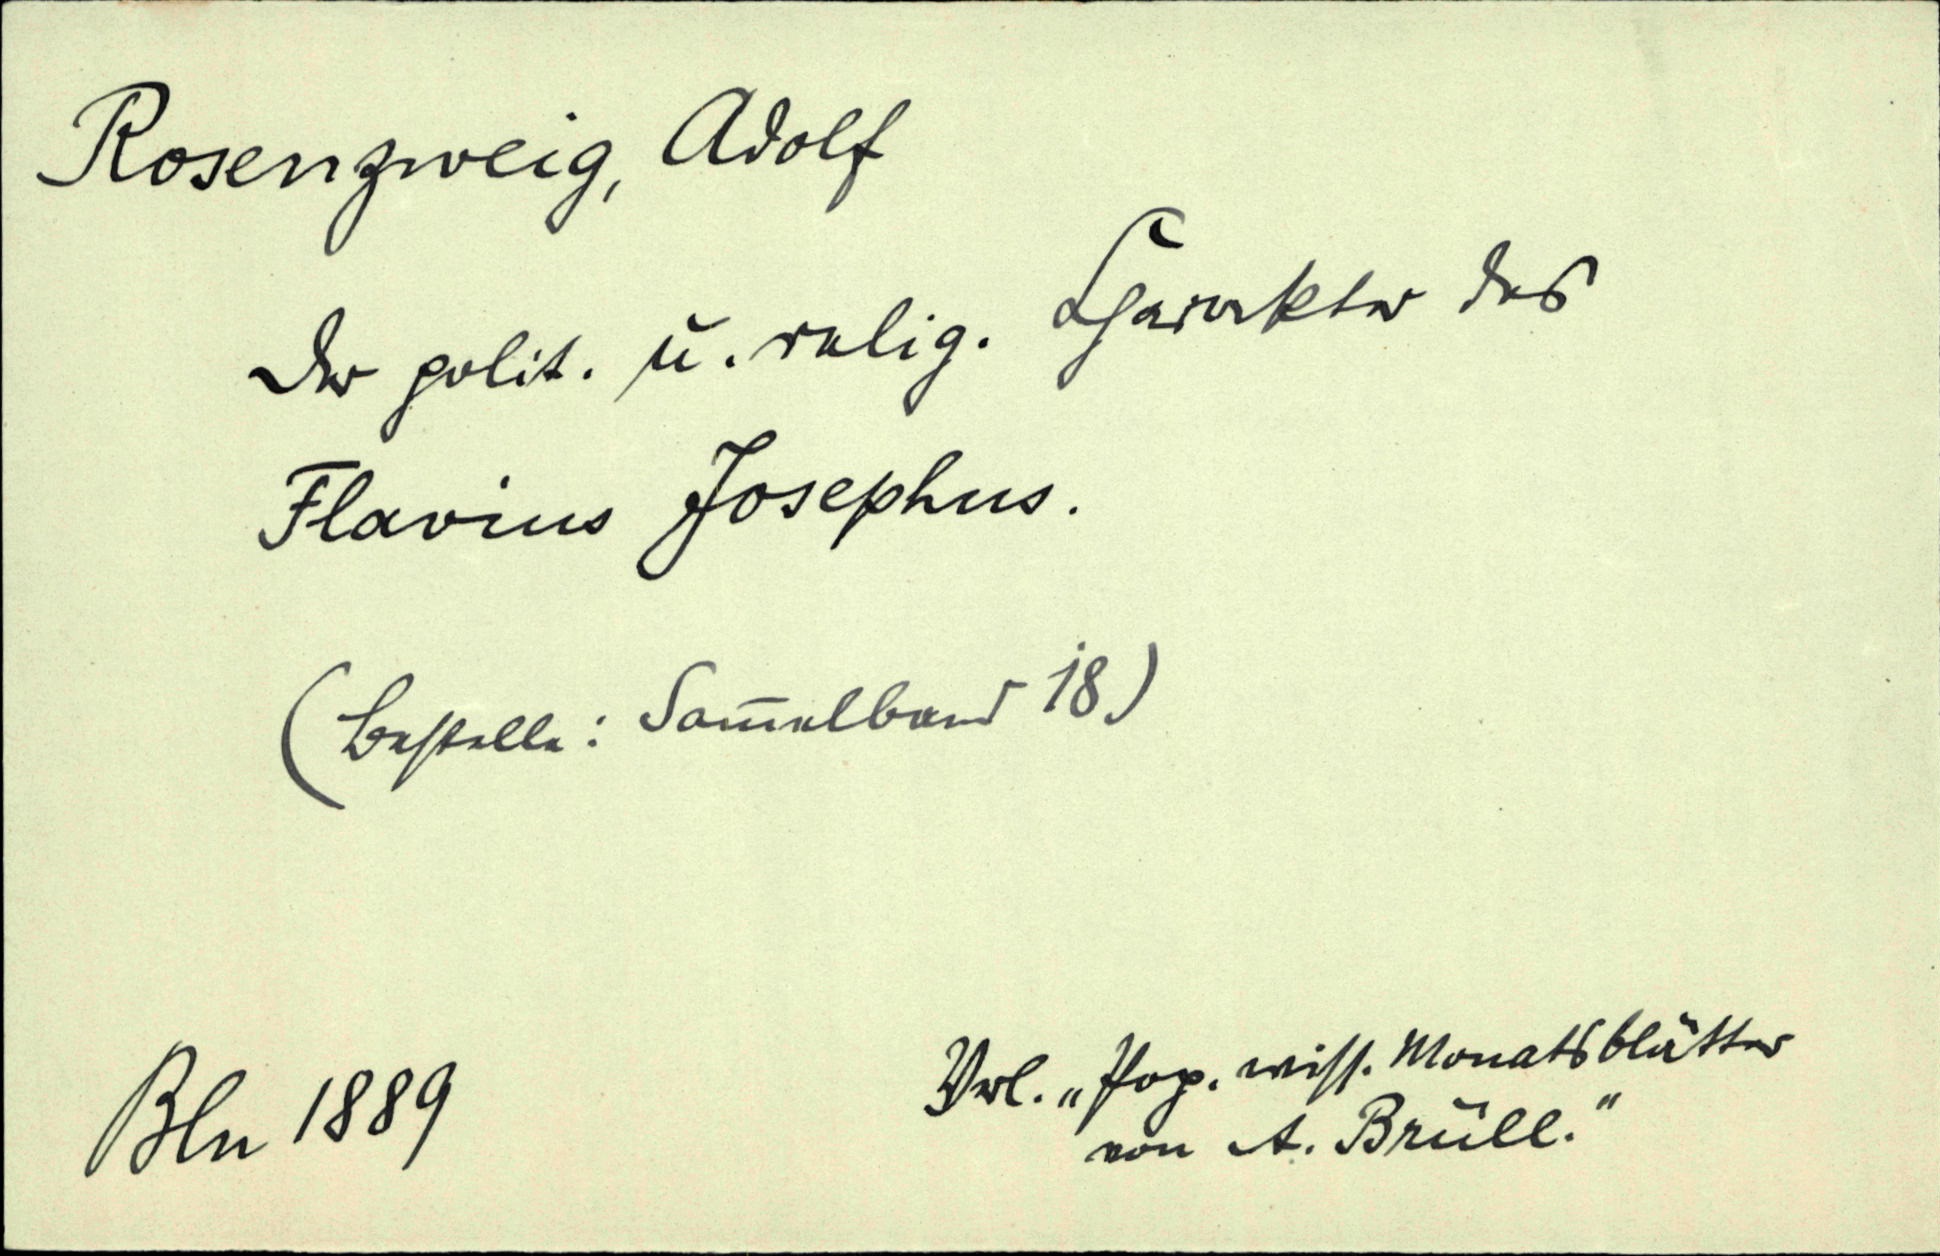 Rosenzweig, Adolf
Der polit. u. relig. Charakter des
Flavius Josephus.
(bestelle: Sam̄elband 18)
Bln 1889
Verl. „Pop. wiss. Monatsblätter
von A. Brüll."